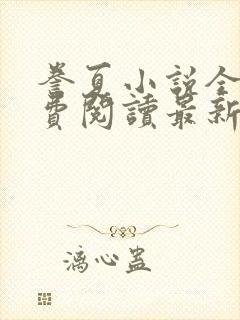 誊夏小说全
费阅读最新
漓心蛊